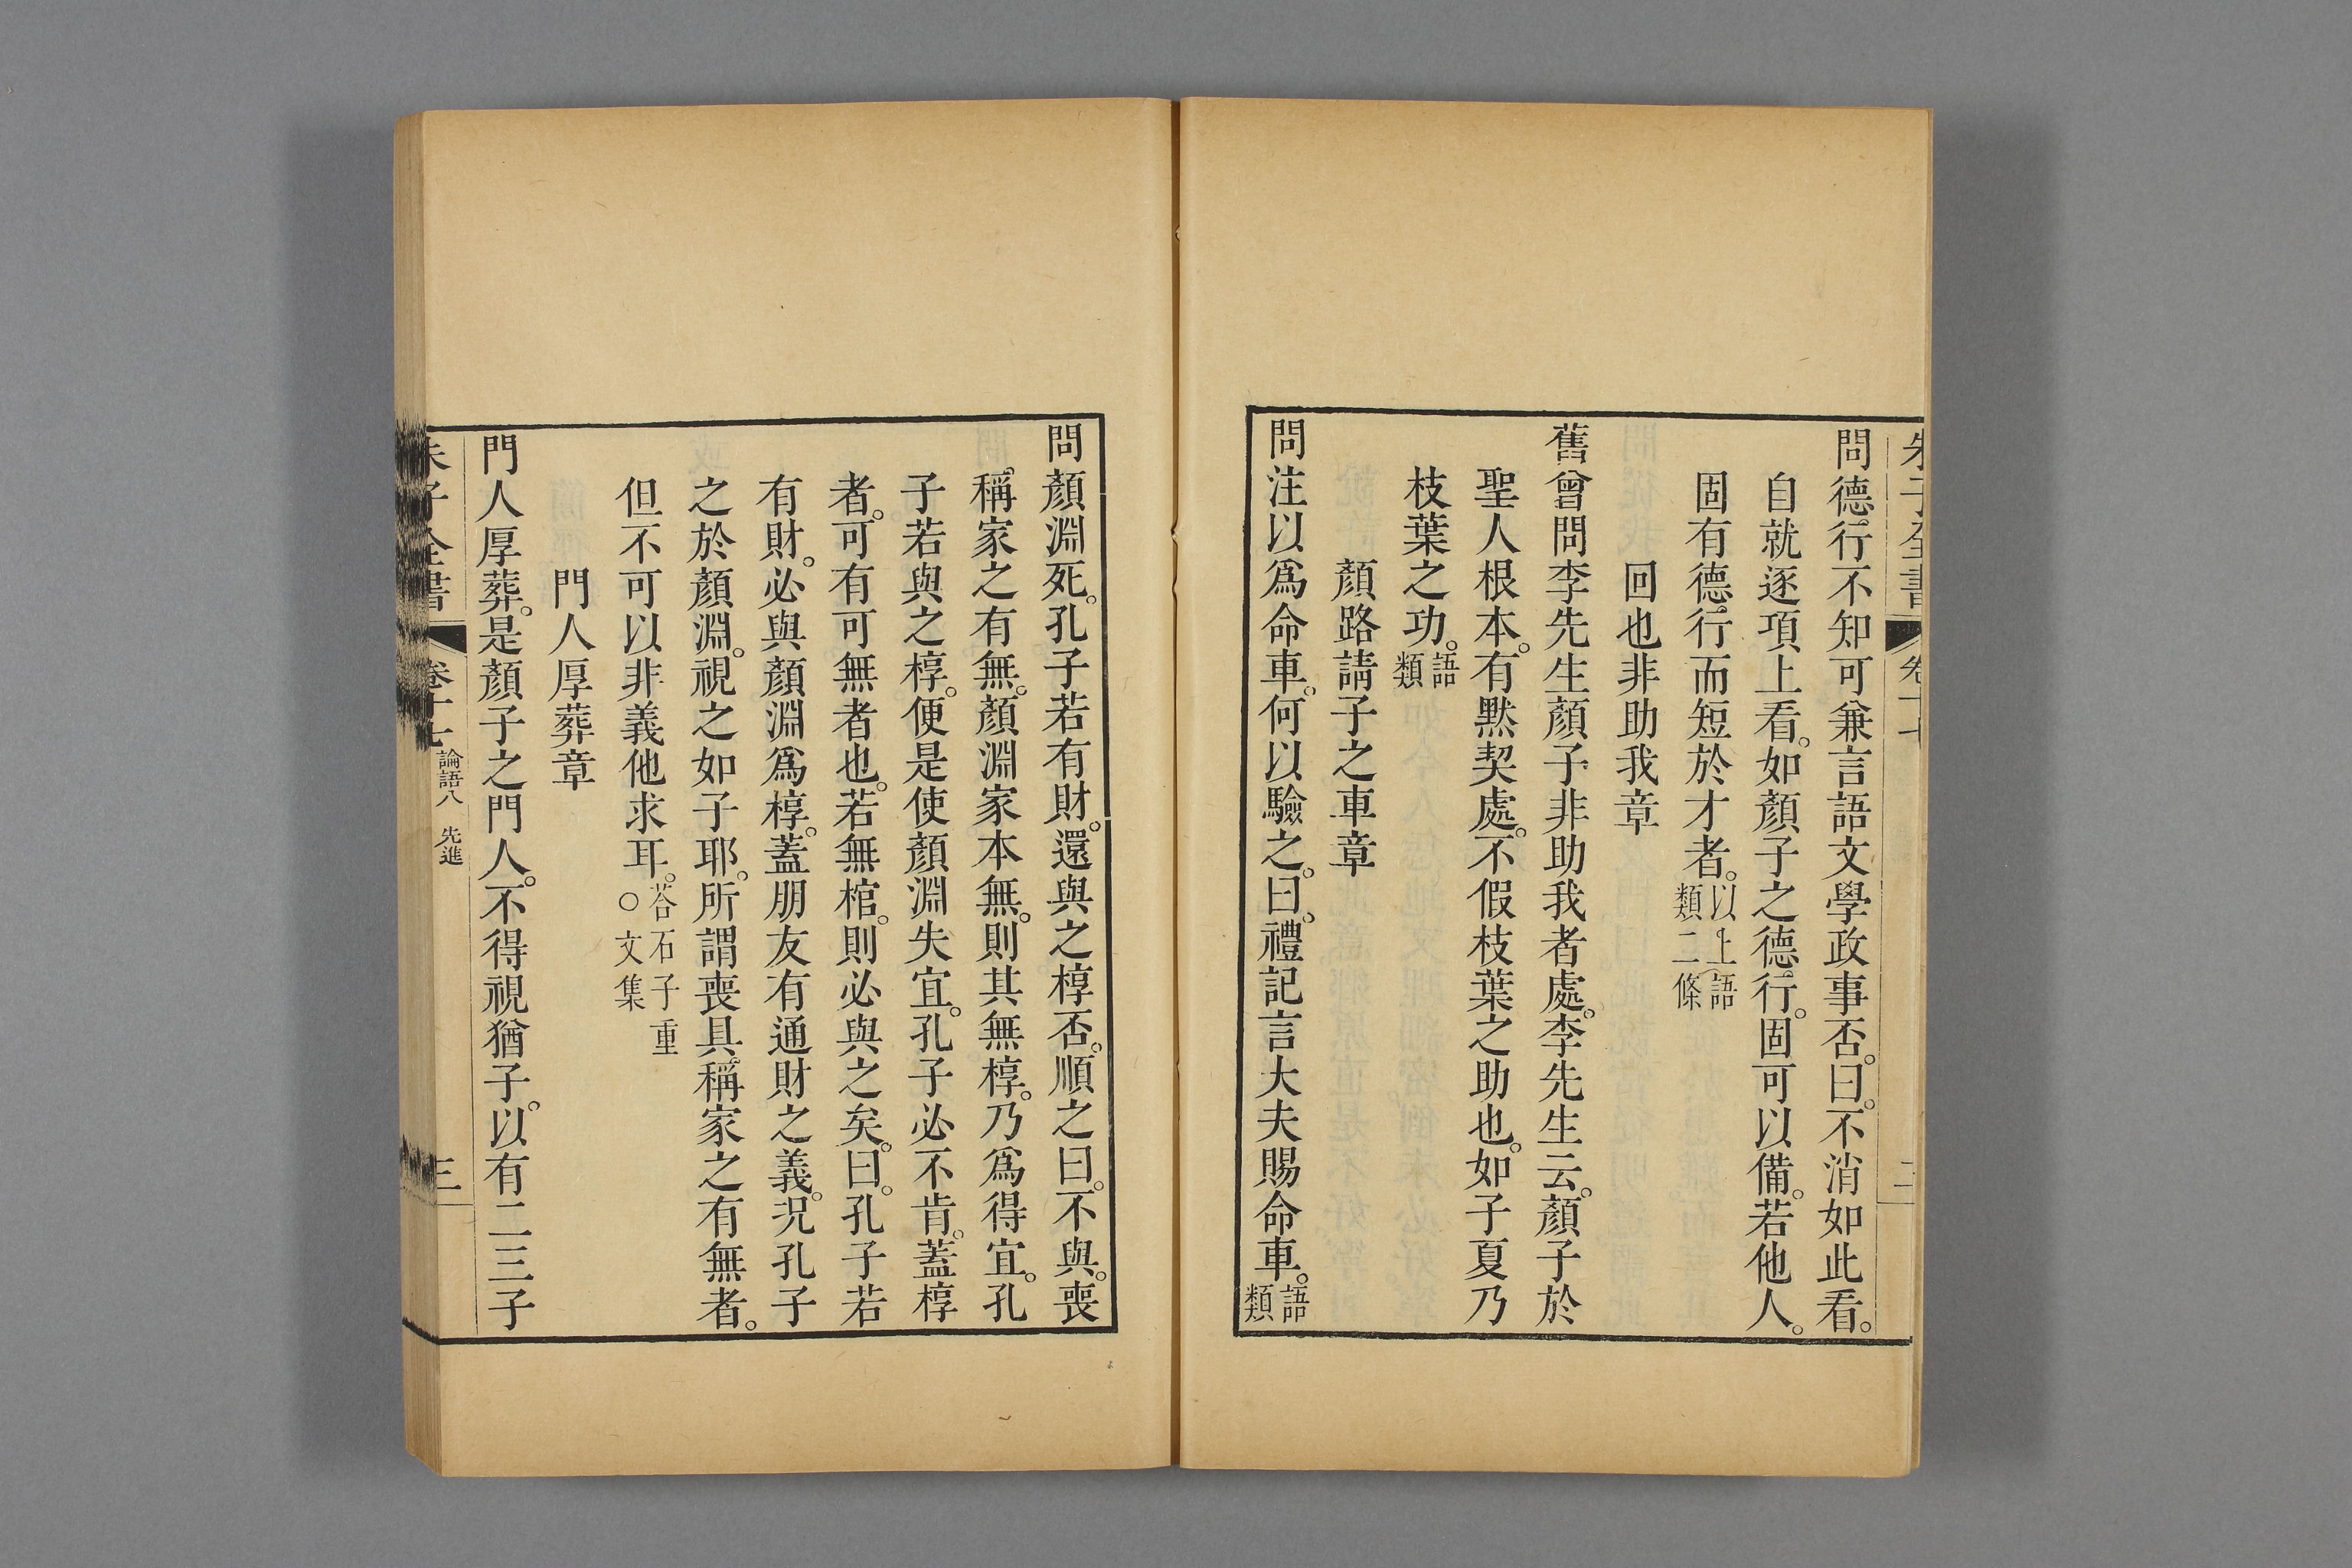 朱子全書 卷十七 二
問德行不知可兼言語文學政事否。曰。不消如此看。
自就逐項上看。如顏子之德行。固可以備。若他人。
固有德行而短於才者。以上語類二條
回也非助我章
舊曾問李先生顏子非助我者處。李先生云。顏子於
聖人根本。有黙契處。不假枝葉之助也。如子夏乃
枝葉之功。語類
顏路請子之車章
問注以爲命車。何以驗之。曰。禮記言大夫賜命車。語類
問顏淵死。孔子若有財。還與之椁否。順之曰。不與。喪
稱家之有無。顏淵家本無。則其無椁。乃爲得宜。孔
子若與之椁。便是使顏淵失宜。孔子必不肯。蓋椁
者。可有可無者也。若無棺。則必與之矣。曰。孔子若
有財。必與顏淵爲椁。蓋朋友有通財之義。况孔子
之於顏淵。視之如子耶。所謂喪具。稱家之有無者。
但不可以非義他求耳。答石子重○文集
門人厚葬章
門人厚葬。是顏子之門人。不得視猶子。以有二三子
朱子全書 卷十七 論語八 先進 三